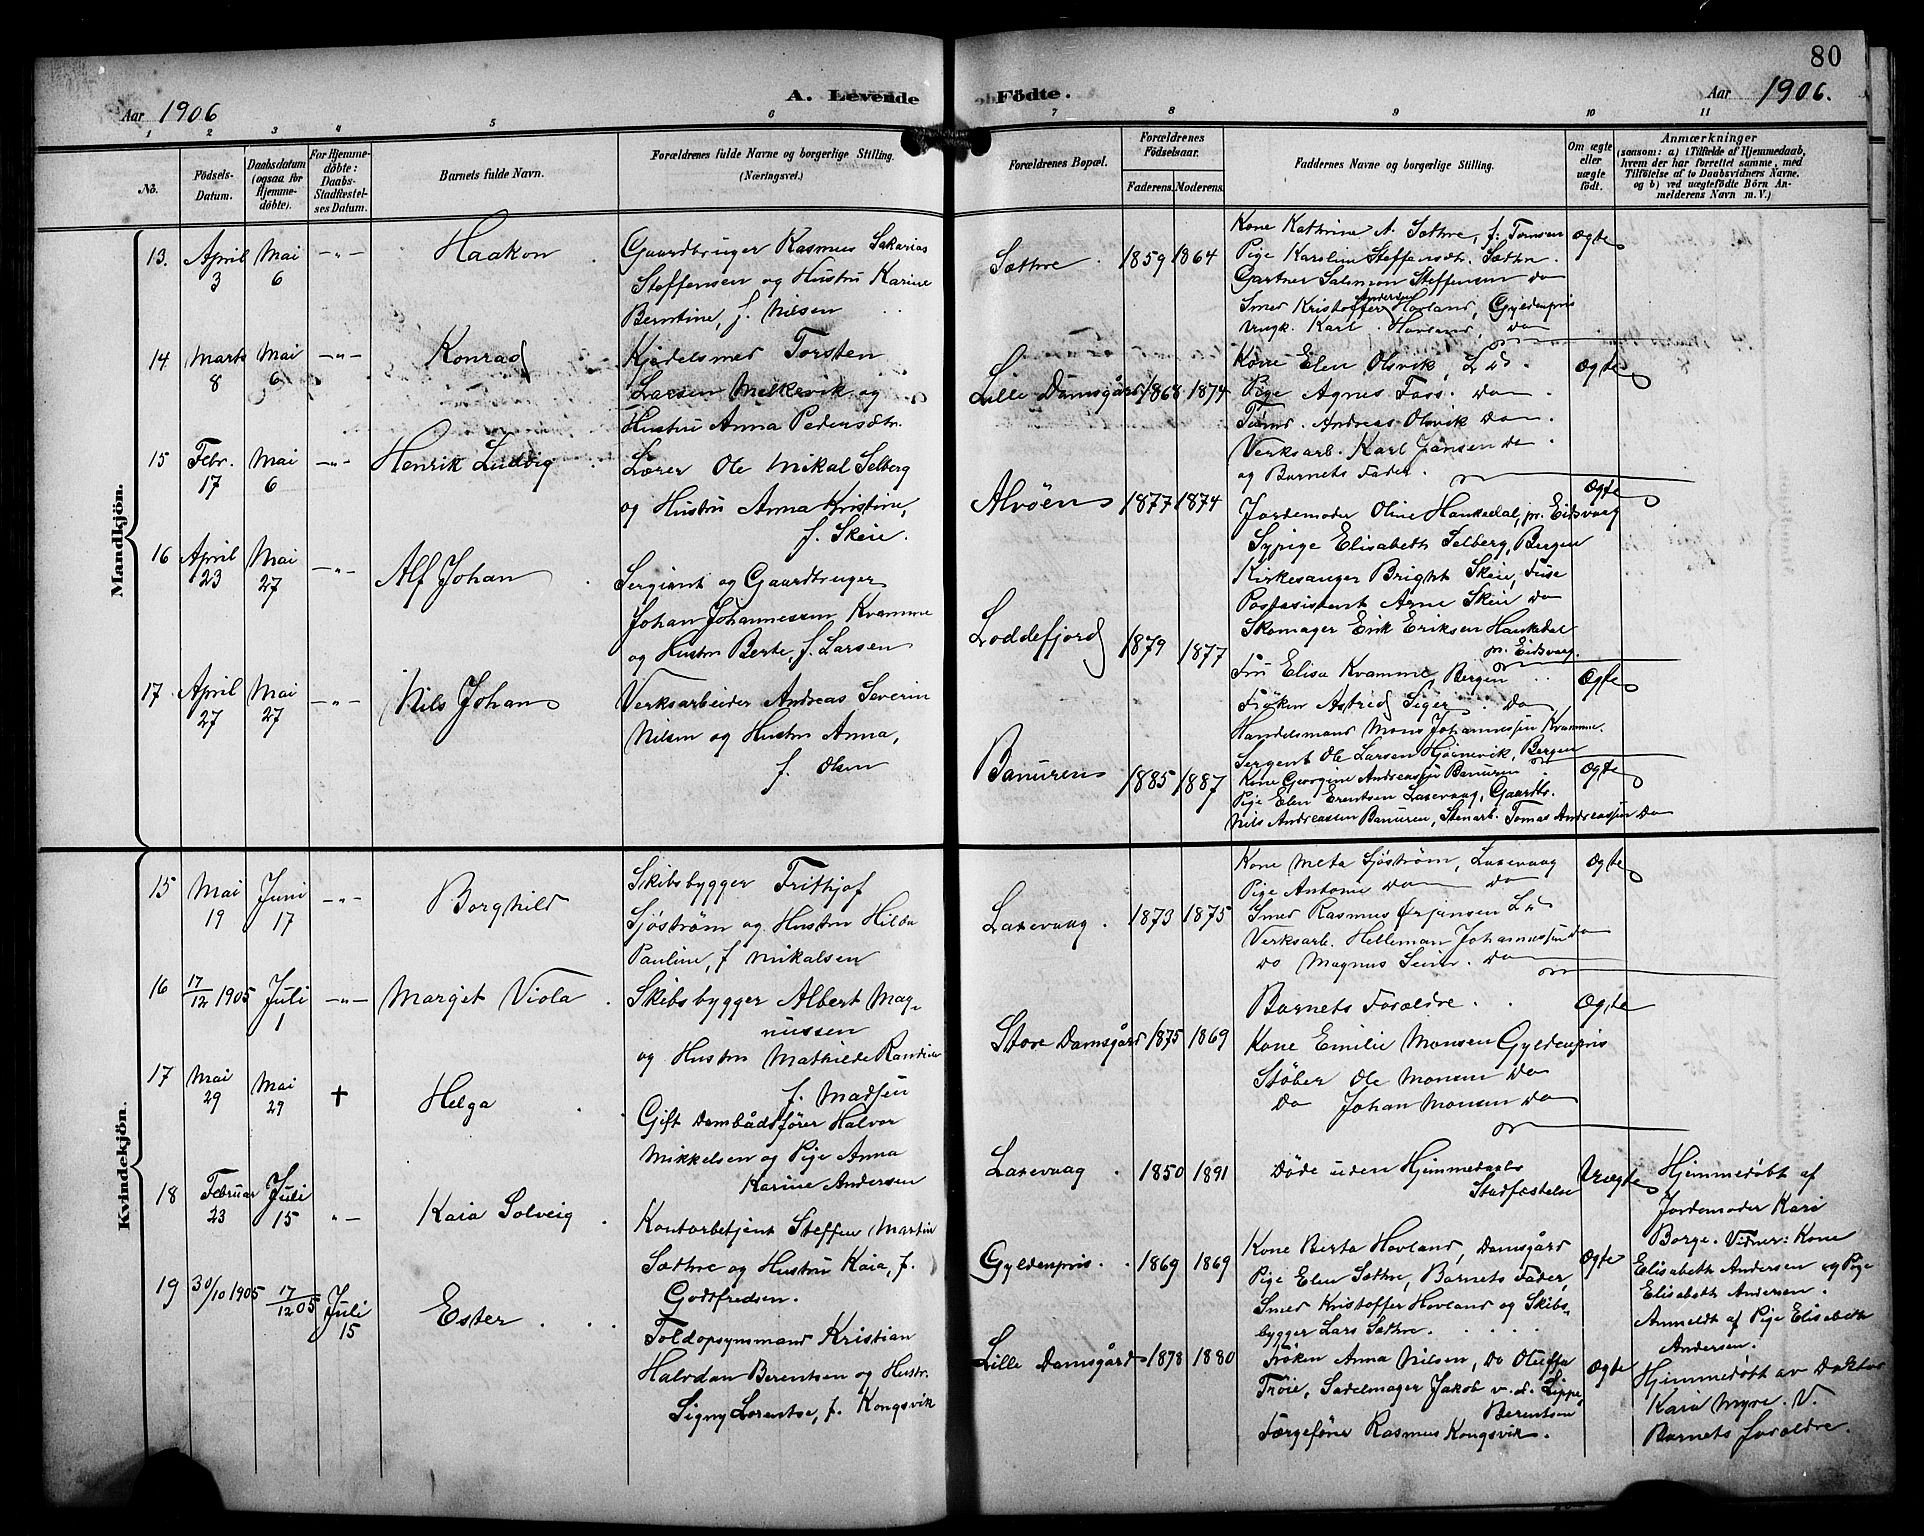 80
Aar 1906
A. Levende
Födte.
Aar 1906.
1 2 3 4 5 6 7 8 9 10 11
No.
Födsels-Datum.
Daabsdatum (ogsaa for Hjemme-döbte).
For Hjemme-döbte: Daabs-Stadfæstel-ses Datum.
Barnets fulde Navn.
Forældrenes fulde Navne og borgerlige Stilling.
(Næringsvei.)
Forældrenes Bopæl.
Forældrenes Födselsaar.
Faderens. Moderens.
Faddernes Navne og borgerlige Stilling.
Om ægte eller uægte födt.
Anmærkninger
(saasom: a) i Tilfælde af Hjemmedaab, hvem der har forrettet samme, med Tilföielse af to Daabsvidners Navne. og b) ved uægtefödte Börn An-melderens Navn m. V.)
Mandkjön.
13. April 3 Mai 6 -"- Haakon
Gaardbruger Rasmus Sakarias
Steffensen og Hustru Karine
Berntine, f. Nilsen
Sæthre 1859 1864
Kone Kathrine A. Sæthre, f. Tomsen
Pige Karoline Steffensdtr. Sæthre
Gartner Salomon Steffensen do
Smed Kristoffer Andersen Hovland, Gyldenpris
Ungk. Karl Hovland, do
Ægte
14 Marts 8 Mai 6 -"- Konrad
Kjedelsmed Torsten
Larsen Melkevik og
Hustru Anna Pedersdtr.
Lille Damsgård 1868 1874
Kone Elen Olsvik, Ld.
Pige Agnes Foss. do
Tømd. Andreas Olsvik do
Verksarb. Karl Jansen do
og Barnets Fader.
Ægte
15 Febr. 17 Mai 6 -"- Henrik Ludvig
Lærer Ole Mikal Selberg
og Hustru Anna Kristine,
f. Skeie.
Alvöen 1877 1874
Jordemoder Oline Haukedal, pr. Eidsvaag
Sypige Elisabeth Selberg, Bergen
Kirkesanger Bright Skeie, Fuse
Postasistent Arne Skeie do
Skomager Erik Eriksen Haukedal
pr. Eidsvaag.
Ægte
16 April 23 Mai 27 -"- Alf Johan
Sergiant og Gaardbruger
Johan Johannessen Kvamme
og Hustru Berte, f. Larsen
Loddefjord 1879 1877
Fru Elisa Kvamme, Bergen
Frøken Astrid Seger do
Handelsmand Mons Johannessen Kvamme.
Sergent Ole Larsen Hjørnevik, Bergen
Ægte
17. April 27 Mai 27 -"- Nils Johan
Verksarbeider Andreas Severin
Nilsen og Hustru Anna,
f. Olsen
Banuren 1885 1887
Kone Georgine Andreassen Banuren
Pige Elen Erentsen Laxevaag, Gaardbr.
Nils Andreassen Banuren, Stenarb. Tomas Andreassen do
Ægte
Kvindekjön.
15 Mai 19 Juni 17 -"- Borghild
Skibsbygger Frithjof
Sjöström og Hustru Hilda
Pauline, f Mikalsen
Laxevaag. 1873 1875
Kone Meta Sjöström, Laxevaag
Pige Antonie do do
Smed Rasmus Ørjansen Ld
Verksarb. Helleman Johannessen do
do Magnus Seim. do
Ægte
16 17/12 1905 Juli 1 -"- Marget Viola
Skibsbygger Albert Mag-
nussen
og Hustru Mathilde Randine
f. Madsen
Store Damsgård 1875 1869
Barnets Forældre.
Kone Emilie Monsen Gyldenpris
Støber Ole Monsen do
do Johan Monsen do
Ægte
17 Mai 29 Mai 29 + Helga
Gift Dambådsfører Halvor
Mikkelsen og Pige Anna
Karine Andersen
Laxevaag 1850 1891
Døde uden Hjemmedaabs
Stadfæstelse
Uægte
Hjemmedøbt af
Jordemoder Kari
Borge. Vidner: Kone
Elisabeth Andersen og Pige
Elisabeth Andersen.
Anmeldt af Pige Elisabeth
Andersen.
18 Februar 23 Juli 15 "- Kaia Solveig
Kontorbetjent Steffen Martin
Sæthre og Hustru Kaia, f.
Godtfredsen.
Gyldenpris. 1869 1869
Kone Berta Hovland, Damsgård
Pige Elen Sæthre, Barnets Fader,
Smed Kristoffer Hovland og Skibs-
bygger Lars Sæthre.
Ægte
19 30/10 1905 17/12 05 Juli 15 Ester
Toldopsynsmand Kristian
Halvdan Berentsen og Hustr.
Signy Lorentse, f. Kongsvik
Lille Damsgård 1878 1880
Frøken Anna Nilsen, Do Oluffa
Trøie, Sadelmager Jakob v. d. Lippe
Berentsen
Færgefører Rasmus Kongsvik.
Ægte
Hjemmedøbt av Doktor
Kaia Myre. V.
Barnets forældre.